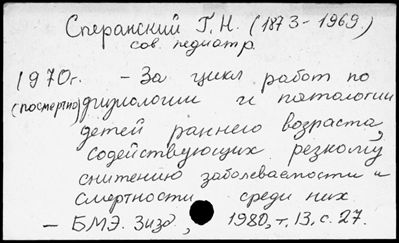 Сперанский Г. Н. (1873 - 1969)
сов. педиатр
1970г. - За цикл работ по
(посмертно) физиологии и патологии
детей раннего возраста,
содействующих резкому
снитению заболеваемости и
смертности среди них
- БМЭ. 3изд., 1980, т. 13, с. 27.